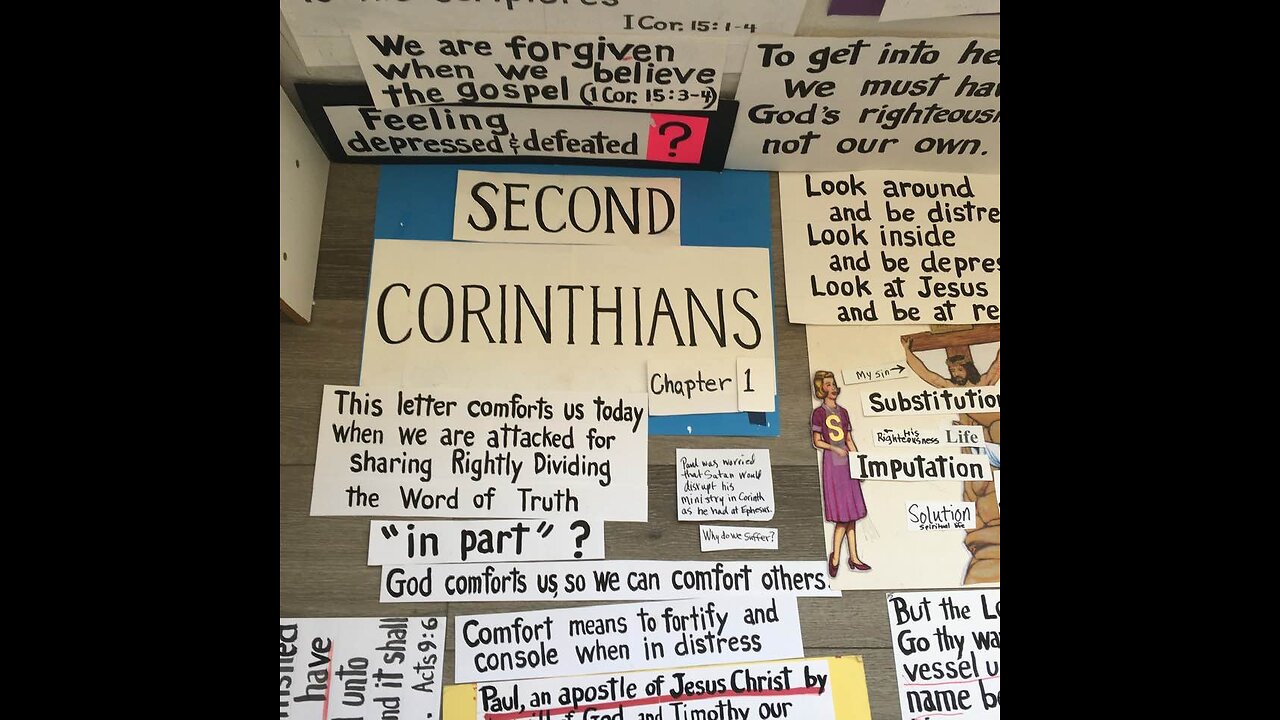 to the scriptures
I Cor. 15:1-4
We are forgiven
when we believe
the gospel (1 Cor. 15:3-4)
Feeling
depressed & defeated ?
To get into he
we must ha
God's righteous
not our own.
SECOND
CORINTHIANS
Chapter 1
Look around
and be distre
Look inside
and be depres
Look at Jesus
and be at re
My sin →
Substitution
S
His
Righteousness Life
Imputation
Solution
Spiritual life
This letter comforts us today
when we are attacked for
sharing Rightly Dividing
the Word of Truth
Paul was worried
that Satan would
disrupt his
ministry in Corinth
as he had at Ephesus.
Why do we suffer?
"in part" ?
God comforts us, so we can comfort others.
Comfort means to fortify and
console when in distress
Paul, an apostle of Jesus Christ by
of God, and Timothy our
have
unto
nd it shall
Acts 9:6
But the Lo
Go thy wa
vessel u
name be